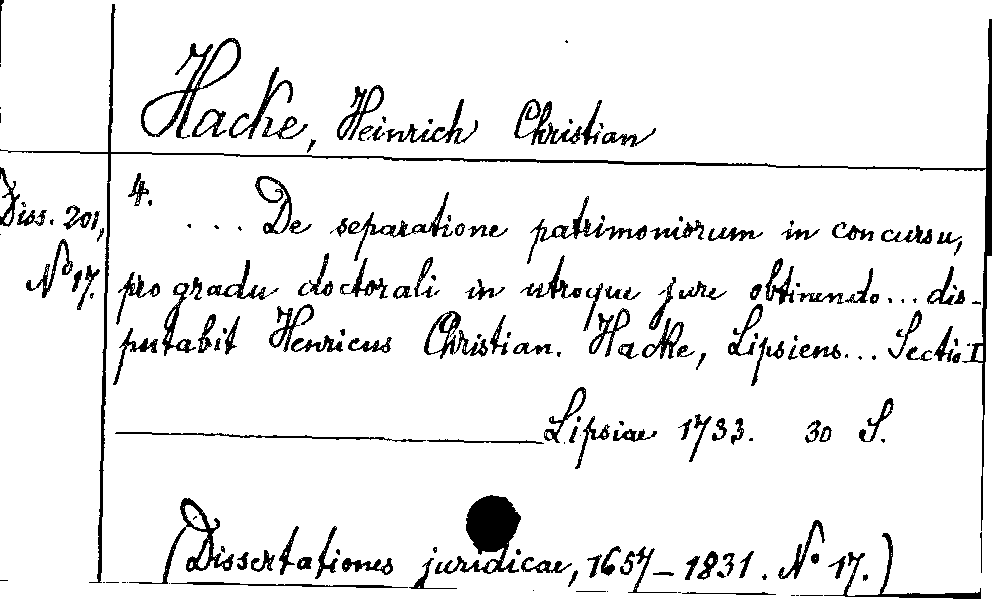 Hacke, Heinrich Christian
Diss. 201,
No 17.
4.
... De separatione patrimoniorum in concursu,
pro gradu doctorali in utroque jure obtinendo... dis-
putabit Henricus Christian. Hacke, Lipsiens... Sectio I
Lipsiae 1733. 30 S.
(Dissertationes juridicae, 1657-1831. No 17.)